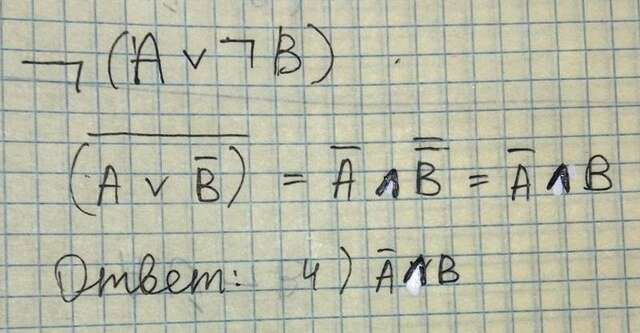 ¬(A ∨ ¬B)
(A ∨ B̅)̅ = A̅ ∧ B̿ = A̅ ∧ B
Ответ: 4) A̅ ∧ B